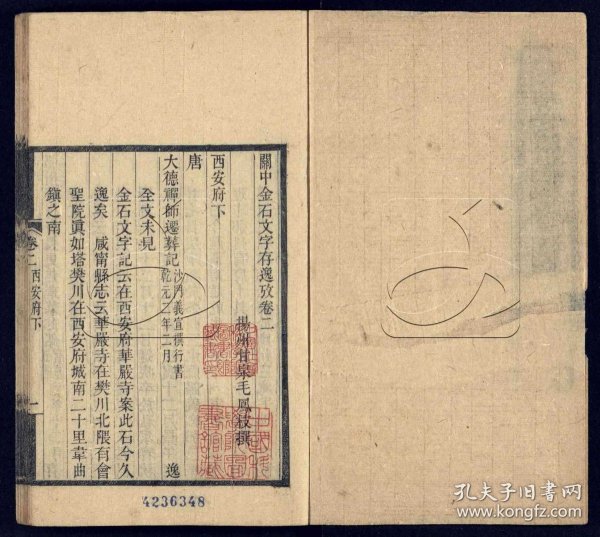 關中金石文字存逸攷卷二
揚州甘泉毛鳳枝撰
西安府下
唐
大德禪師遷葬記 沙門義宣撰行書 乾元二年二月 逸
全文未見
金石文字記云在西安府華嚴寺案此石今久
逸矣 咸甯縣志云華嚴寺在樊川北隈有會
聖院眞如塔樊川在西安府城南二十里韋曲
鎭之南
卷二西安府下
一
4236348
孔夫子旧书网
www.kongfz.com